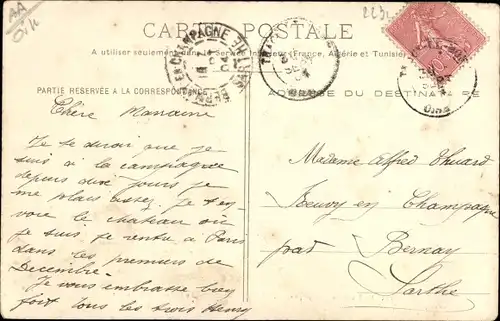 AA
CARTE POSTALE
A utiliser seulement dans le Service Intérieur (France, Algérie et Tunisie)
PARTIE RÉSERVÉE A LA CORRESPONDANCE
ADRESSE DU DESTINATAIRE
Chère Marraine
Je te dirai que je
suis à la campagne
depuis dix jours je
me plais assez. Je t'en-
voie le chateau où
je suis je rentre à Paris
dans les premiers de
Décembre.
Je vous embrasse bien
fort tous les trois Henry
Madame Alfred Thuard
Neuvy en Champagne
par Bernay
Sarthe